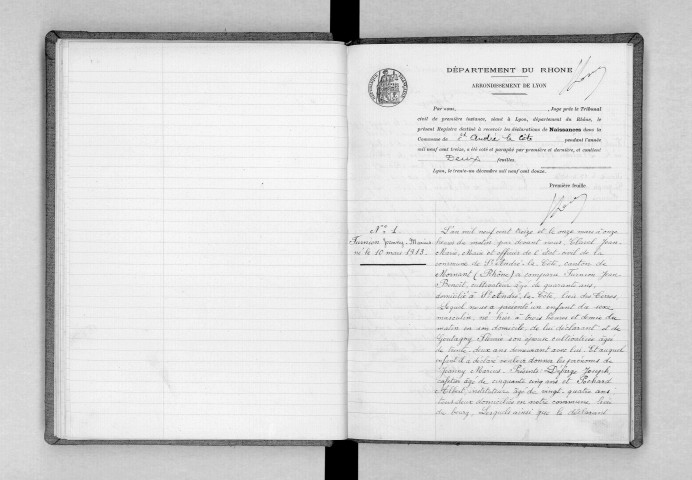 DÉPARTEMENT DU RHONE
ARRONDISSEMENT DE LYON
Par nous, , Juge près le Tribunal
civil de première instance, séant à Lyon, département du Rhône, le
présent Registre destiné à recevoir les déclarations de Naissances dans la
Commune de St André la Côte pendant l'année
mil neuf cent treize, a été coté et paraphé par première et dernière, et contient
Deux feuilles.
Lyon, le trente-un décembre mil neuf cent douze.
Première feuille
No 1
Marius
né le 10 mars 1913.
L'an mil neuf cent treize et le onze mars à onze
heures du matin par devant nous Clavel Jean
Marie, Maire et officier de l'état civil de la
commune de St André-la-Côte, canton de
Mornant (Rhône) a comparu Furnion Jean
Benoît, cultivateur âgé de quarante ans,
domicilié à St André-la-Côte, lieu des Terres,
Lequel nous a présenté un enfant du sexe
masculin, né hier à trois heures et demie du
matin en son domicile, de lui déclarant et de
son épouse cultivatrice âgée
de trente-deux ans demeurant avec lui. Et auquel
enfant il a déclaré vouloir donner les prénoms de
Marius. Présents Joseph
cafetier âgé de cinquante cinq ans et Pochard
Albert, instituteur âgé de vingt-quatre ans
tous deux domiciliés en notre commune lieu
du bourg, Lesquels ainsi que le déclarant